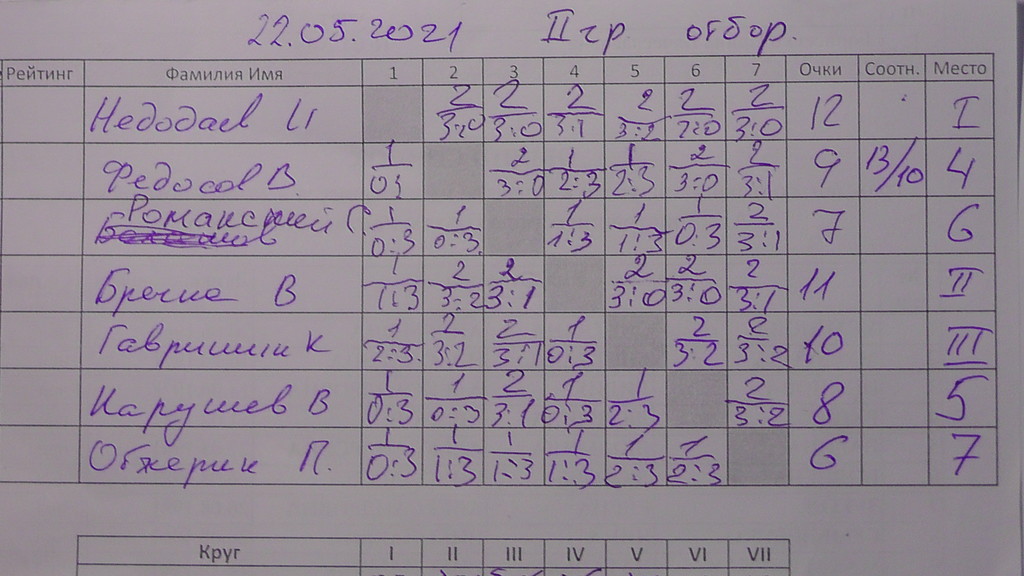 22.05.2021 II гр отбор.
Рейтинг Фамилия Имя 1 2 3 4 5 6 7 Очки Соотн. Место
Недодаев И 2 3:0 2 3:0 2 3:1 2 3:2 2 3:0 2 3:0 12 I
Федосов В. 1 0:3 2 3:0 1 2:3 1 2:3 2 3:0 2 3:1 9 13/10 4
Романский Г 1 0:3 1 0:3 1 1:3 1 1:3 1 0:3 2 3:1 7 6
В 1 1:3 2 3:2 2 3:1 2 3:0 2 3:0 2 3:1 11 II
Гавришин К 1 2:3 2 3:2 2 3:1 1 0:3 2 3:2 2 3:2 10 III
Карушев В 1 0:3 1 0:3 2 3:1 1 0:3 1 2:3 2 3:2 8 5
Обжерин П. 1 0:3 1 1:3 1 1:3 1 1:3 1 2:3 1 2:3 6 7
Круг I II III IV V VI VII